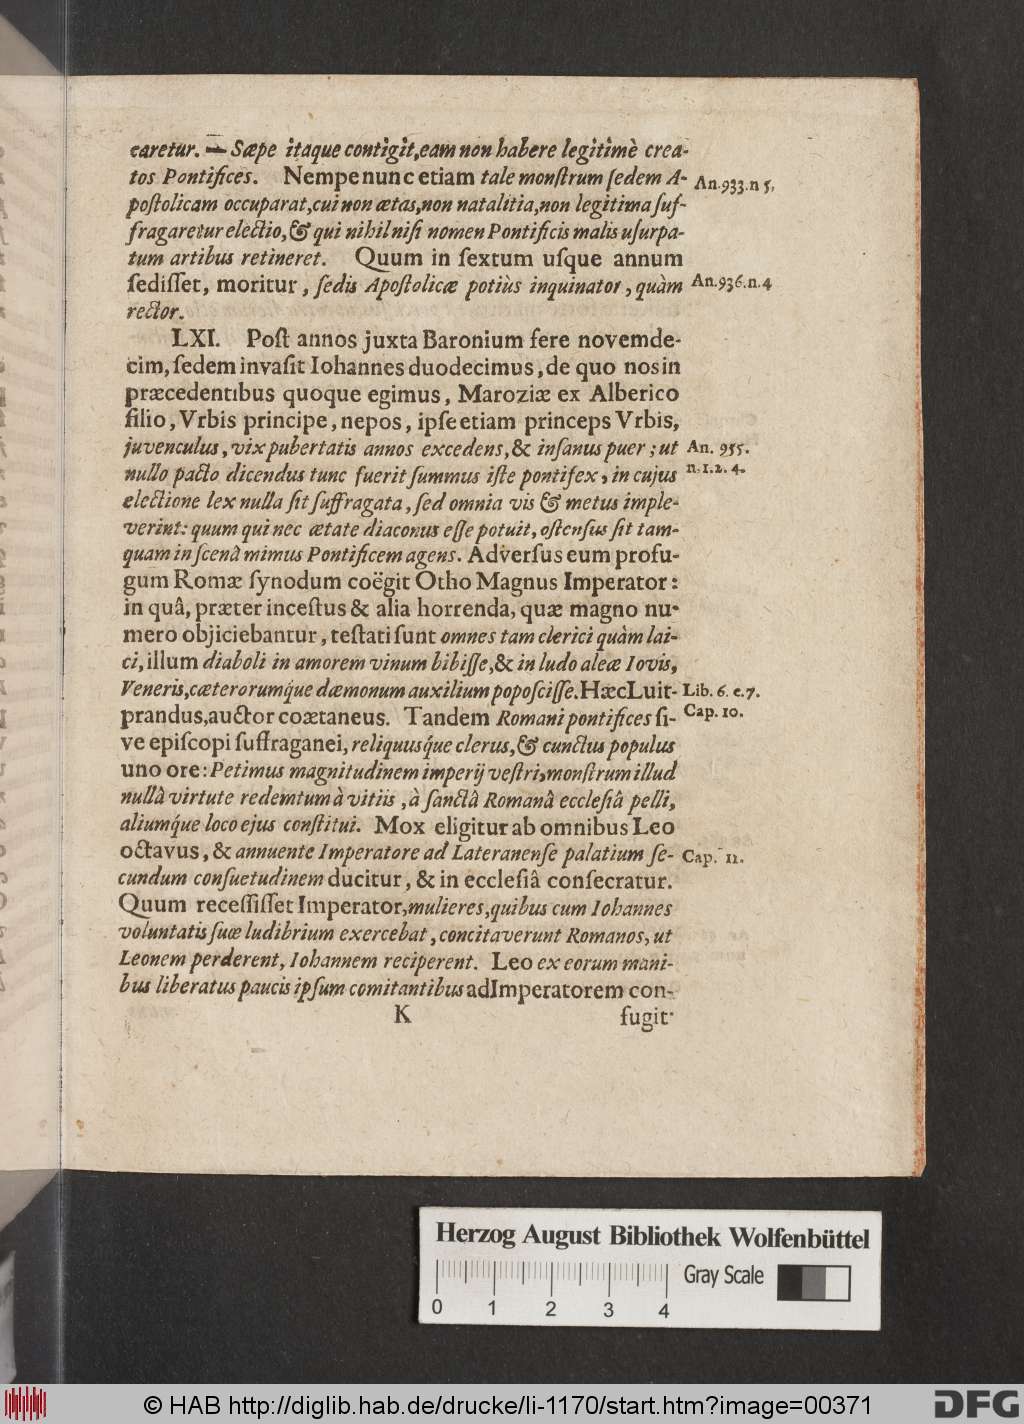 caretur. — Sæpe itaque contigit, eam non habere legitimè crea-
tos Pontifices. Nempe nunc etiam tale monſtrum ſedem A-
An. 933. n 5.
poſtolicam occuparat, cui non ætas, non natalitia, non legitima ſuf-
fragaretur electio, & qui nihil niſi nomen Pontificis malis uſurpa-
tum artibus retineret. Quum in ſextum uſque annum
ſediſſet, moritur, ſedis Apoſtolicæ potiùs inquinator, quàm
An. 936. n. 4
rector.
LXI. Poſt annos juxta Baronium fere novemde-
cim, ſedem invaſit Iohannes duodecimus, de quo nos in
præcedentibus quoque egimus, Maroziæ ex Alberico
filio, Vrbis principe, nepos, ipſe etiam princeps Vrbis,
juvenculus, vix pubertatis annos excedens, & inſanus puer; ut
An. 955.
nullo pacto dicendus tunc fuerit ſummus iſte pontifex, in cujus
n. 1. 2. 4.
electione lex nulla ſit ſuffragata, ſed omnia vis & metus imple-
verint: quum qui nec ætate diaconus eſſe potuit, oſtenſus ſit tam-
quam in ſcenâ mimus Pontificem agens. Adverſus eum profu-
gum Romæ ſynodum coëgit Otho Magnus Imperator:
in quâ, præter inceſtus & alia horrenda, quæ magno nu-
mero objiciebantur, teſtati ſunt omnes tam clerici quàm lai-
ci, illum diaboli in amorem vinum bibiſſe, & in ludo aleæ Iovis,
Veneris, cæterorumq́ue dæmonum auxilium popoſciſſe. Hæc Luit-
Lib. 6. c. 7.
prandus, auctor coætaneus. Tandem Romani pontifices ſi-
Cap. 10.
ve epiſcopi ſuffraganei, reliquusq́ue clerus, & cunctus populus
uno ore: Petimus magnitudinem imperij veſtri, monſtrum illud
nullâ virtute redemtum à vitiis, à ſanctâ Romanâ eccleſiâ pelli,
aliumq́ue loco ejus conſtitui. Mox eligitur ab omnibus Leo
octavus, & annuente Imperatore ad Lateranenſe palatium ſe-
Cap. 11.
cundum conſuetudinem ducitur, & in eccleſiâ conſecratur.
Quum receſſiſſet Imperator, mulieres, quibus cum Iohannes
voluntatis ſuæ ludibrium exercebat, concitaverunt Romanos, ut
Leonem perderent, Iohannem reciperent. Leo ex eorum mani-
bus liberatus paucis ipſum comitantibus ad Imperatorem con-
K
fugit
Herzog August Bibliothek Wolfenbüttel
Gray Scale
0 1 2 3 4
© HAB http://diglib.hab.de/drucke/li-1170/start.htm?image=00371
DFG